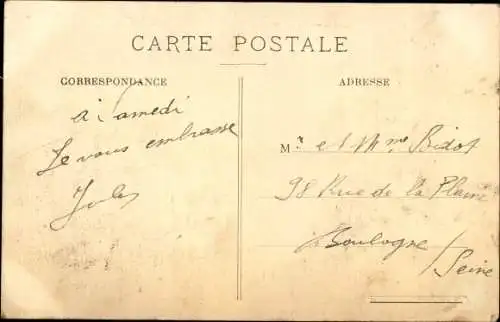 CARTE POSTALE
CORRESPONDANCE
à Samedi
Je vous embrasse
Jules
ADRESSE
Mr et Mme Bidot
98 Rue de la Plaine
Boulogne /
Seine